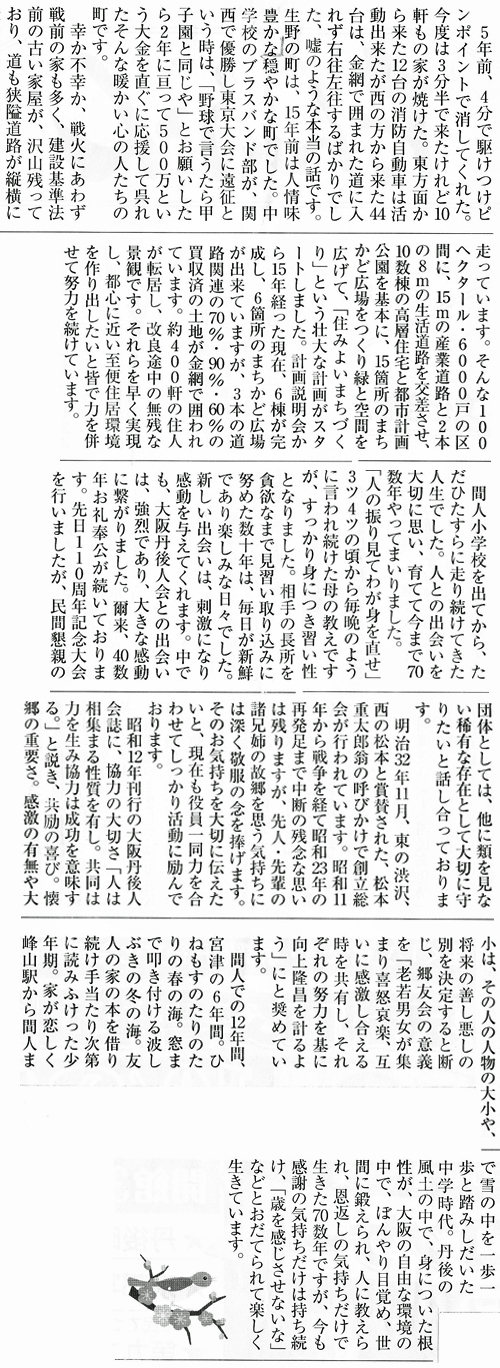 ５年前、４分で駆けつけピ
ンポイントで消してくれた。
今度は３分半で来たけれど10
軒もの家が焼けた。東方面か
ら来た12台の消防自動車は活
動出来たが西の方から来た44
台は、金網で囲まれた道に入
れず右往左往するばかりでし
た。嘘のような本当の話です。
生野の町は、15年前は人情味
豊かな穏やかな町でした。中
学校のブラスバンド部が、関
西で優勝し東京大会に遠征と
いう時は、「野球で言うたら甲
子園と同じや」とお願いした
ら２年に亘って５００万とい
う大金を直ぐに応援して呉れ
たそんな暖かい心の人たちの
町です。
幸か不幸か、戦火にあわず
戦前の家も多く、建設基準法
前の古い家屋が、沢山残って
おり、道も狭隘道路が縦横に
走っています。そんな１００
ヘクタール・６０００戸の区
間に、15ｍの産業道路と２本
の８ｍの生活道路を交差させ、
10数棟の高層住宅と都市計画
公園を基本に、15箇所のまち
かど広場をつくり緑と空間を
広げて、「住みよいまちづく
り」という壮大な計画がスタ
ートしました。計画説明会か
ら15年経った現在、６棟が完
成し、６箇所のまちかど広場
が出来ていますが、３本の道
路関連の70％・90％・60％の
買収済の土地が金網で囲われ
ています。約４００軒の住人
が転居し、改良途中の無残な
景観です。それらを早く実現
し、都心に近い至便住居環境
を作り出したいと皆で力を併
せて努力を続けています。
間人小学校を出てから、た
だひたすらに走り続けてきた
人生でした。人との出会いを
大切に思い、育てて今まで70
数年やってまいりました。
「人の振り見てわが身を直せ」
３ツ４ツの頃から毎晩のよう
に言われ続けた母の教えです
が、すっかり身につき習い性
となりました。相手の長所を
貪欲なまで見習い取り込みに
努めた数十年は、毎日が新鮮
であり楽しみな日々でした。
新しい出会いは、刺激になり
感動を与えてくれます。中で
も、大阪丹後人会との出会い
は、強烈であり、大きな感動
に繋がりました。爾来、40数
年お礼奉公が続いておりま
す。先日１１０周年記念大会
を行いましたが、民間懇親の
団体としては、他に類を見な
い稀有な存在として大切に守
りたいと話し合っておりま
す。
明治32年11月、東の渋沢、
西の松本と賞賛された、松本
重太郎翁の呼びかけで創立総
会が行われています。昭和11
年から戦争を経て昭和23年の
再発足まで中断の残念な思い
は残りますが、先人・先輩の
諸兄姉の故郷を思う気持ちに
は深く敬服の念を捧げます。
そのお気持ちを大切に伝えた
いと、現在も役員一同力を合
わせてしっかり活動に励んで
おります。
昭和12年刊行の大阪丹後人
会誌に、協力の大切さ「人は
相集まる性質を有し。共同は
力を生み協力は成功を意味す
る。」と説き、共励の喜び。懐
郷の重要さ。感激の有無や大
小は、その人の人物の大小や、
将来の善し悪しの
別を決定すると断
じ、郷友会の意義
を「老若男女が集
まり喜怒哀楽、互
いに感激し合える
時を共有し、それ
ぞれの努力を基に
向上隆昌を計るよ
う」にと奨めてい
ます。
間人での12年間、
宮津の６年間。ひ
ねもすのたりのた
りの春の海。窓ま
で叩き付ける波し
ぶきの冬の海。友
人の家の本を借り
続け手当たり次第
に読みふけった少
年期。家が恋しく
峰山駅から間人ま
で雪の中を一歩一
歩と踏みしだいた
中学時代。丹後の
風土の中で、身についた根
性が、大阪の自由な環境の
中で、ぼんやり目覚め、世
間に鍛えられ、人に教えら
れ、恩返しの気持ちだけで
生きた70数年ですが、今も
感謝の気持ちだけは持ち続
け、「歳を感じさせないな」
などとおだてられて楽しく
生きています。